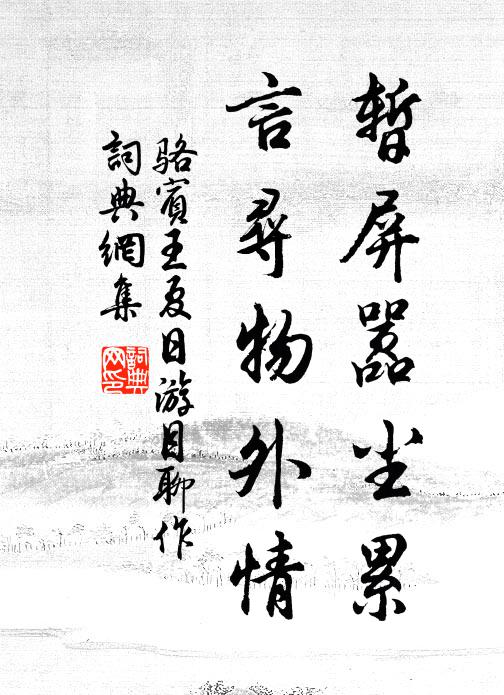 暫屏囂尘累
言尋物外情
骆賓王夏日游目聊作
詞典網集
詞典网印